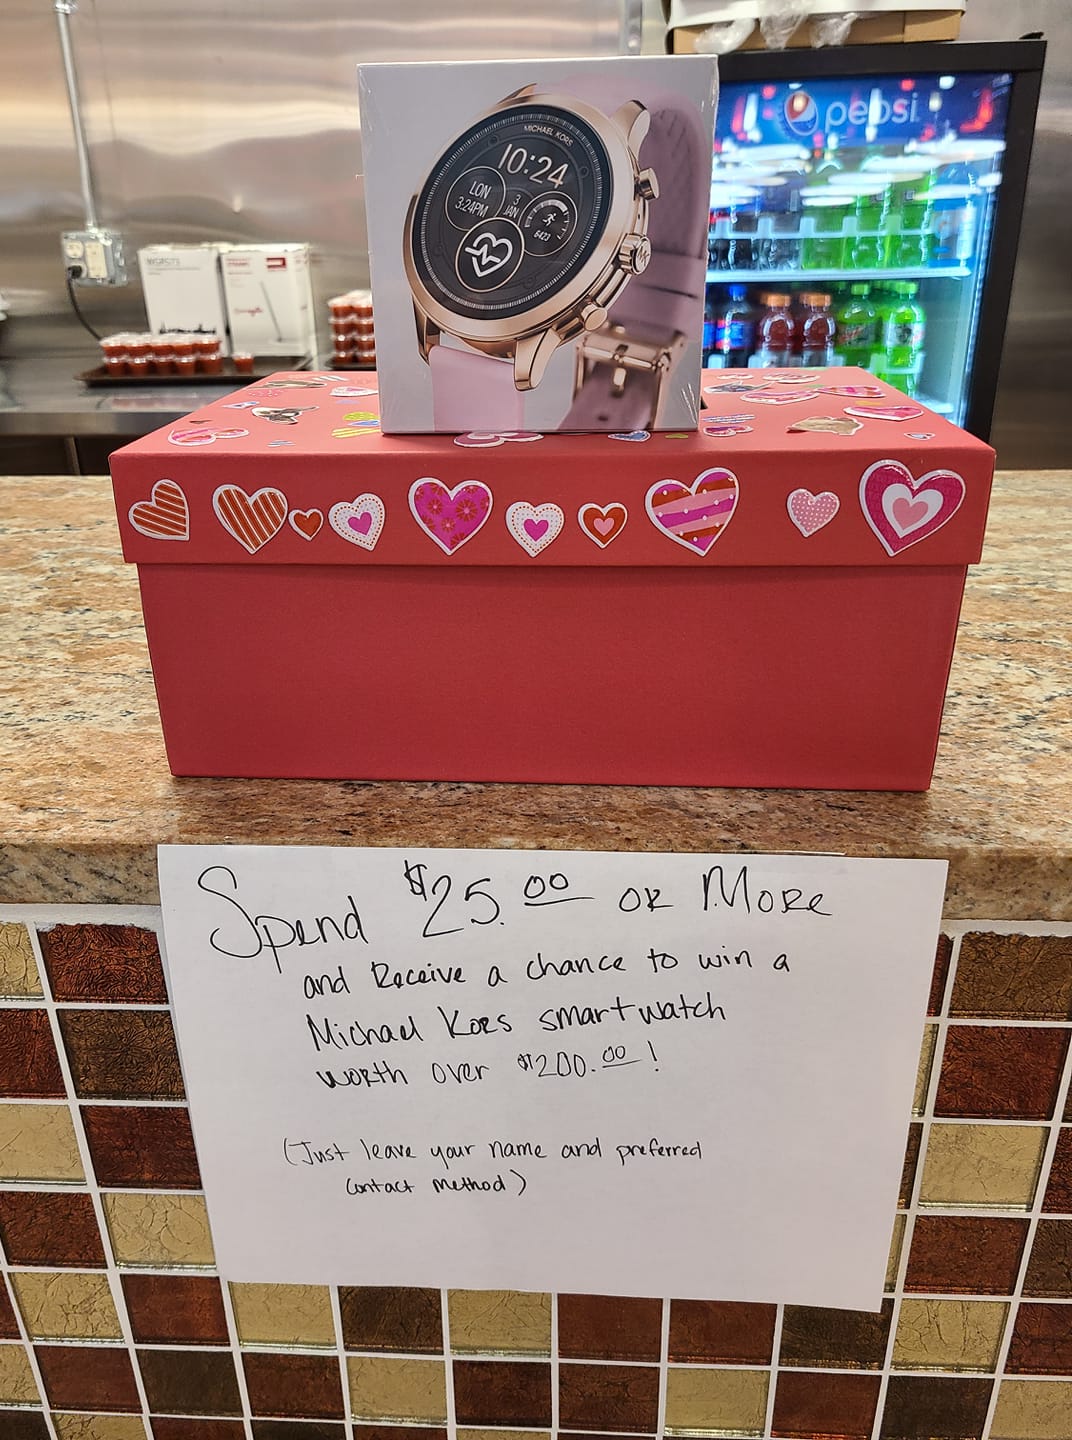 pepsi
MICHAEL KORS
10:24
LON
3:24PM
3
JAN
6423
Spend $25.00 or More
and Receive a chance to win a
Michael Kors smartwatch
worth over $200.00!
(Just leave your name and preferred
contact method)